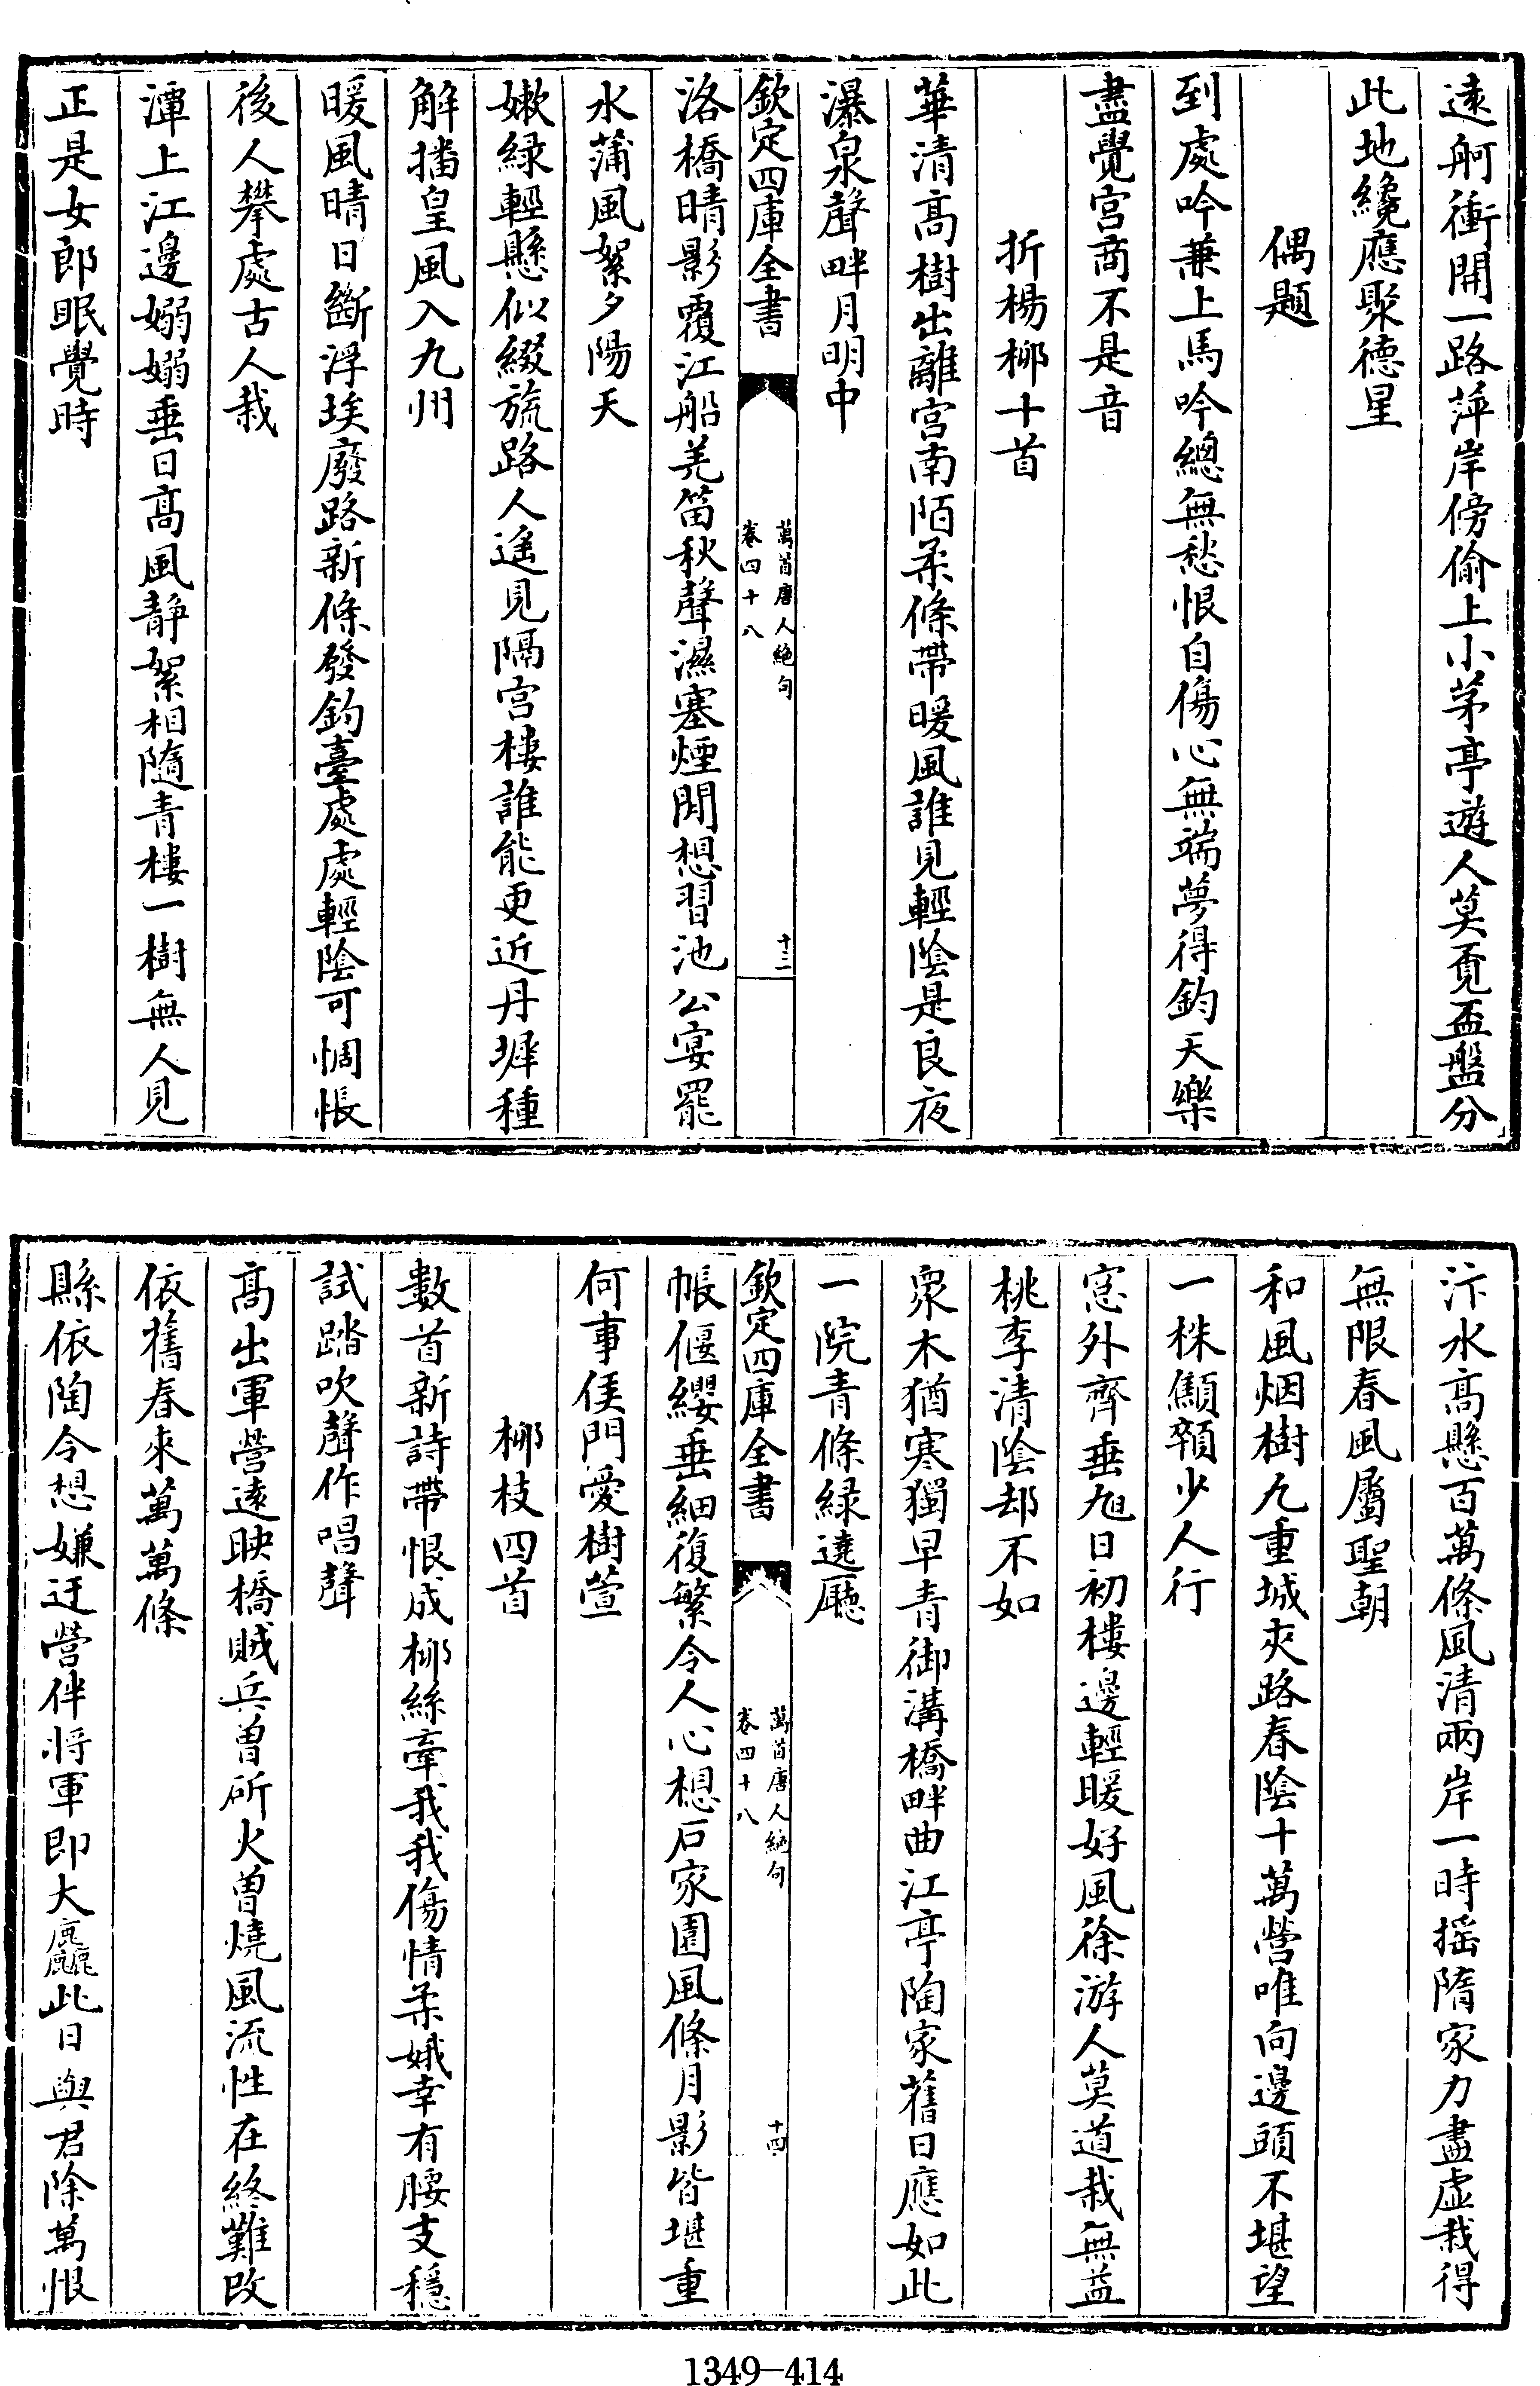 遠舸衝開一路萍岸傍偷上小茅亭遊人莫覔盃盤分
此地纔應聚德星
偶題
到處吟兼上馬吟總無愁恨自傷心無端夢得鈞天樂
盡覺宫商不是音
折楊栁十首
華清髙樹出離宫南陌柔條帶暖風誰見輕陰是良夜
瀑泉聲畔月明中
欽定四庫全書
萬首唐人絶句
卷四十八
十三
洛橋晴影覆江船羌笛秋聲濕塞煙閒想習池公宴罷
水蒲風絮夕陽天
嫰緑輕懸似綴旒路人遥見隔宫樓誰能更近丹墀種
解播皇風入九州
暖風晴日斷浮埃廢路新條發釣臺處處輕陰可惆悵
後人攀處古人栽
潭上江邊嫋嫋垂日髙風静絮相隨青樓一樹無人見
正是女郎眠覺時
汴水髙懸百萬條風清兩岸一時摇隋家力盡虚栽得
無限春風屬聖朝
和風烟樹九重城夾路春陰十萬營唯向邊頭不堪望
一株顦顇少人行
窓外齊垂旭日初樓邊輕暖好風徐游人莫道栽無益
桃李清陰却不如
衆木猶寒獨早青御溝橋畔曲江亭陶家舊日應如此
一院青條緑遶廳
欽定四庫全書
萬首唐人絶句
卷四十八
十四
帳偃纓垂細復繁令人心想石家園風條月影皆堪重
何事侯門愛樹萱
栁枝四首
數首新詩帶恨成栁絲牽我我傷情柔娥幸有腰支穩
試踏吹聲作唱聲
髙出軍營遠映橋賊兵曽斫火曽燒風流性在終難改
依舊春來萬萬條
縣依陶令想嫌迂營伴將軍即大麤此日與君除萬恨
1349-414